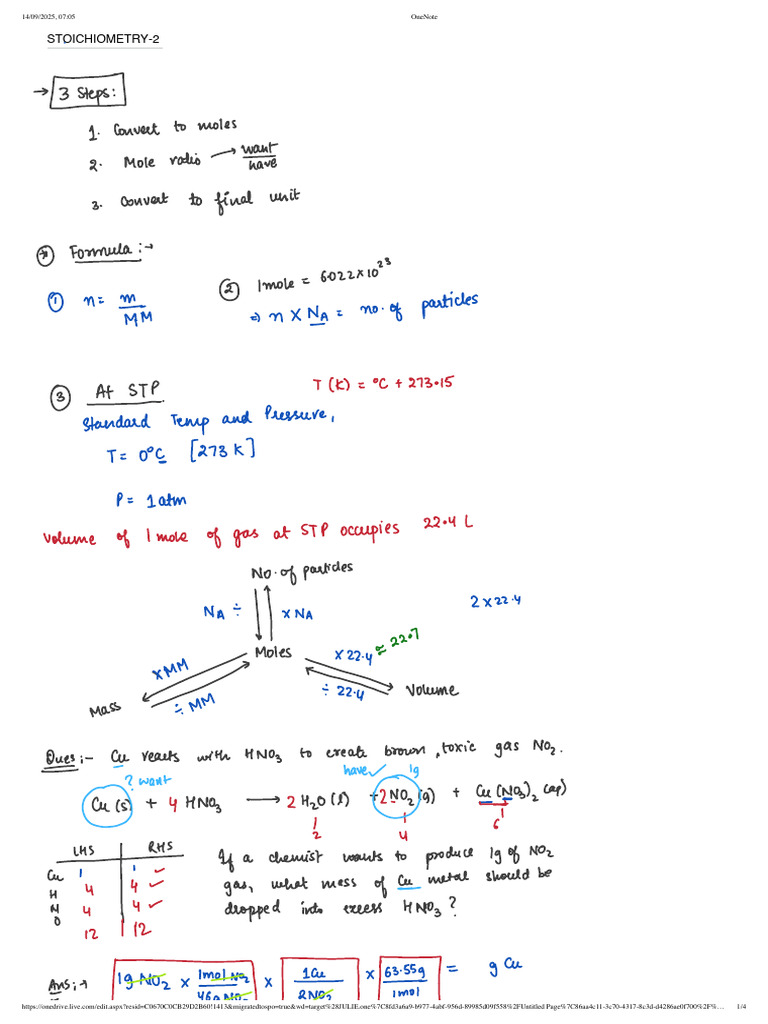 14/09/2025, 07:05 OneNote
STOICHIOMETRY-2
→ 3 Steps:
1. Convert to moles
2. Mole ratio → want/have
3. Convert to final unit
* Formula :→
① n = m/MM
② 1mole = 6.022 x 10²³
⇒ n x N_A = no. of particles
③ At STP
T (K) = °C + 273.15
Standard Temp and Pressure,
T = 0°C [273 K]
P = 1 atm
Volume of 1 mole of gas at STP occupies 22.4 L
No. of particles
N_A ÷ x N_A 2 x 22.4
Moles
x MM x 22.4 ≃ 22.7
÷ MM ÷ 22.4
Mass Volume
Ques :- Cu reacts with HNO₃ to create brown, toxic gas NO₂.
? want have ✓ 1g
Cu (s) + 4 HNO₃ ⟶ 2 H₂O (l) + 2 NO₂ (g) + Cu (NO₃)₂ (aq)
2 4 6
LHS RHS
Cu 1 1 ✓
H 4 4 ✓
N 4 4 ✓
O 12 12
If a chemist wants to produce 1g of NO₂
gas, what mass of Cu metal should be
dropped into excess HNO₃ ?
Ans :→ 1g NO₂ x 1mol NO₂/46g NO₂ x 1Cu/2NO₂ x 63.55g/1mol = g Cu
https://onedrive.live.com/edit.aspx?resid=C0670C0CB29D2B60!1413&migratedtospo=true&wd=target%28JULIE.one%7C8fd3a6a9-b977-4abf-956d-89985d09f558%2FUntitled Page%7C86aa4c11-3c70-4317-8c3d-d4286ae0f700%2F%… 1/4